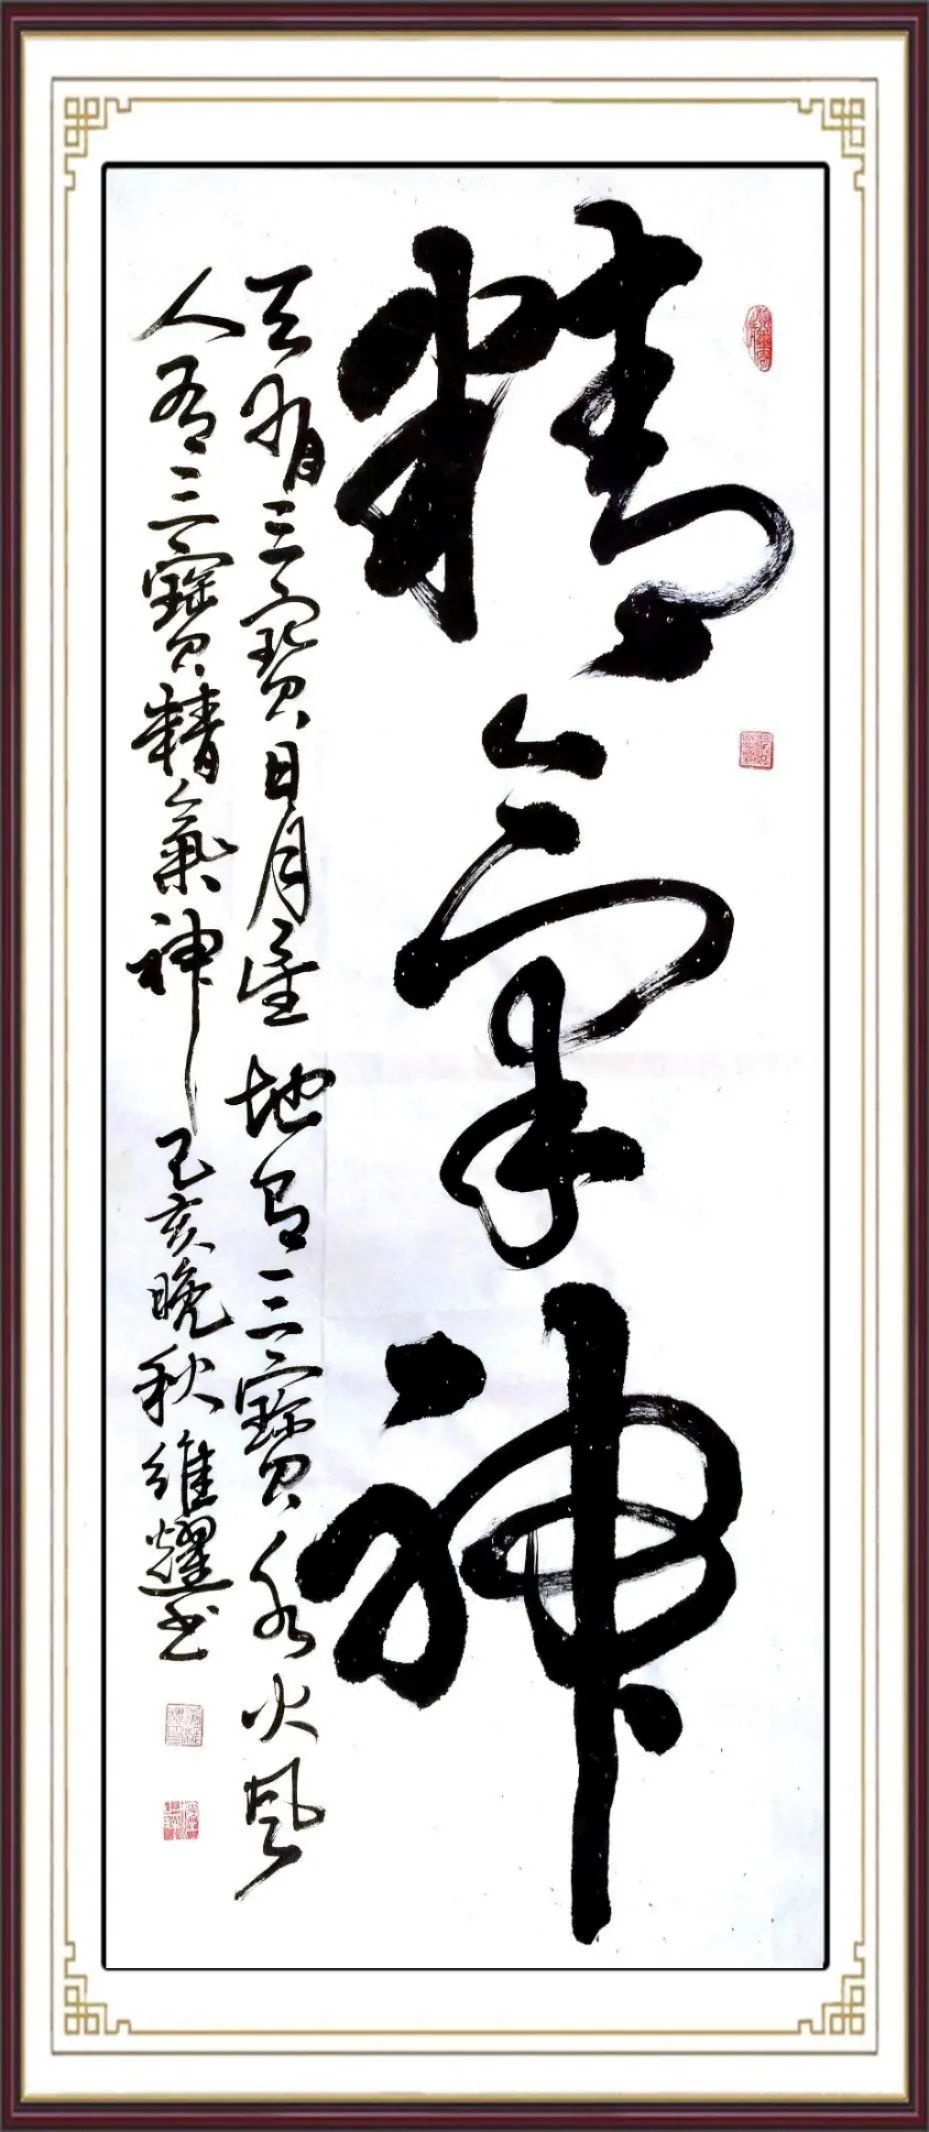 精氣神
天有三寶日月星 地有三寶水火風
人有三寶精氣神 己亥晚秋維耀书